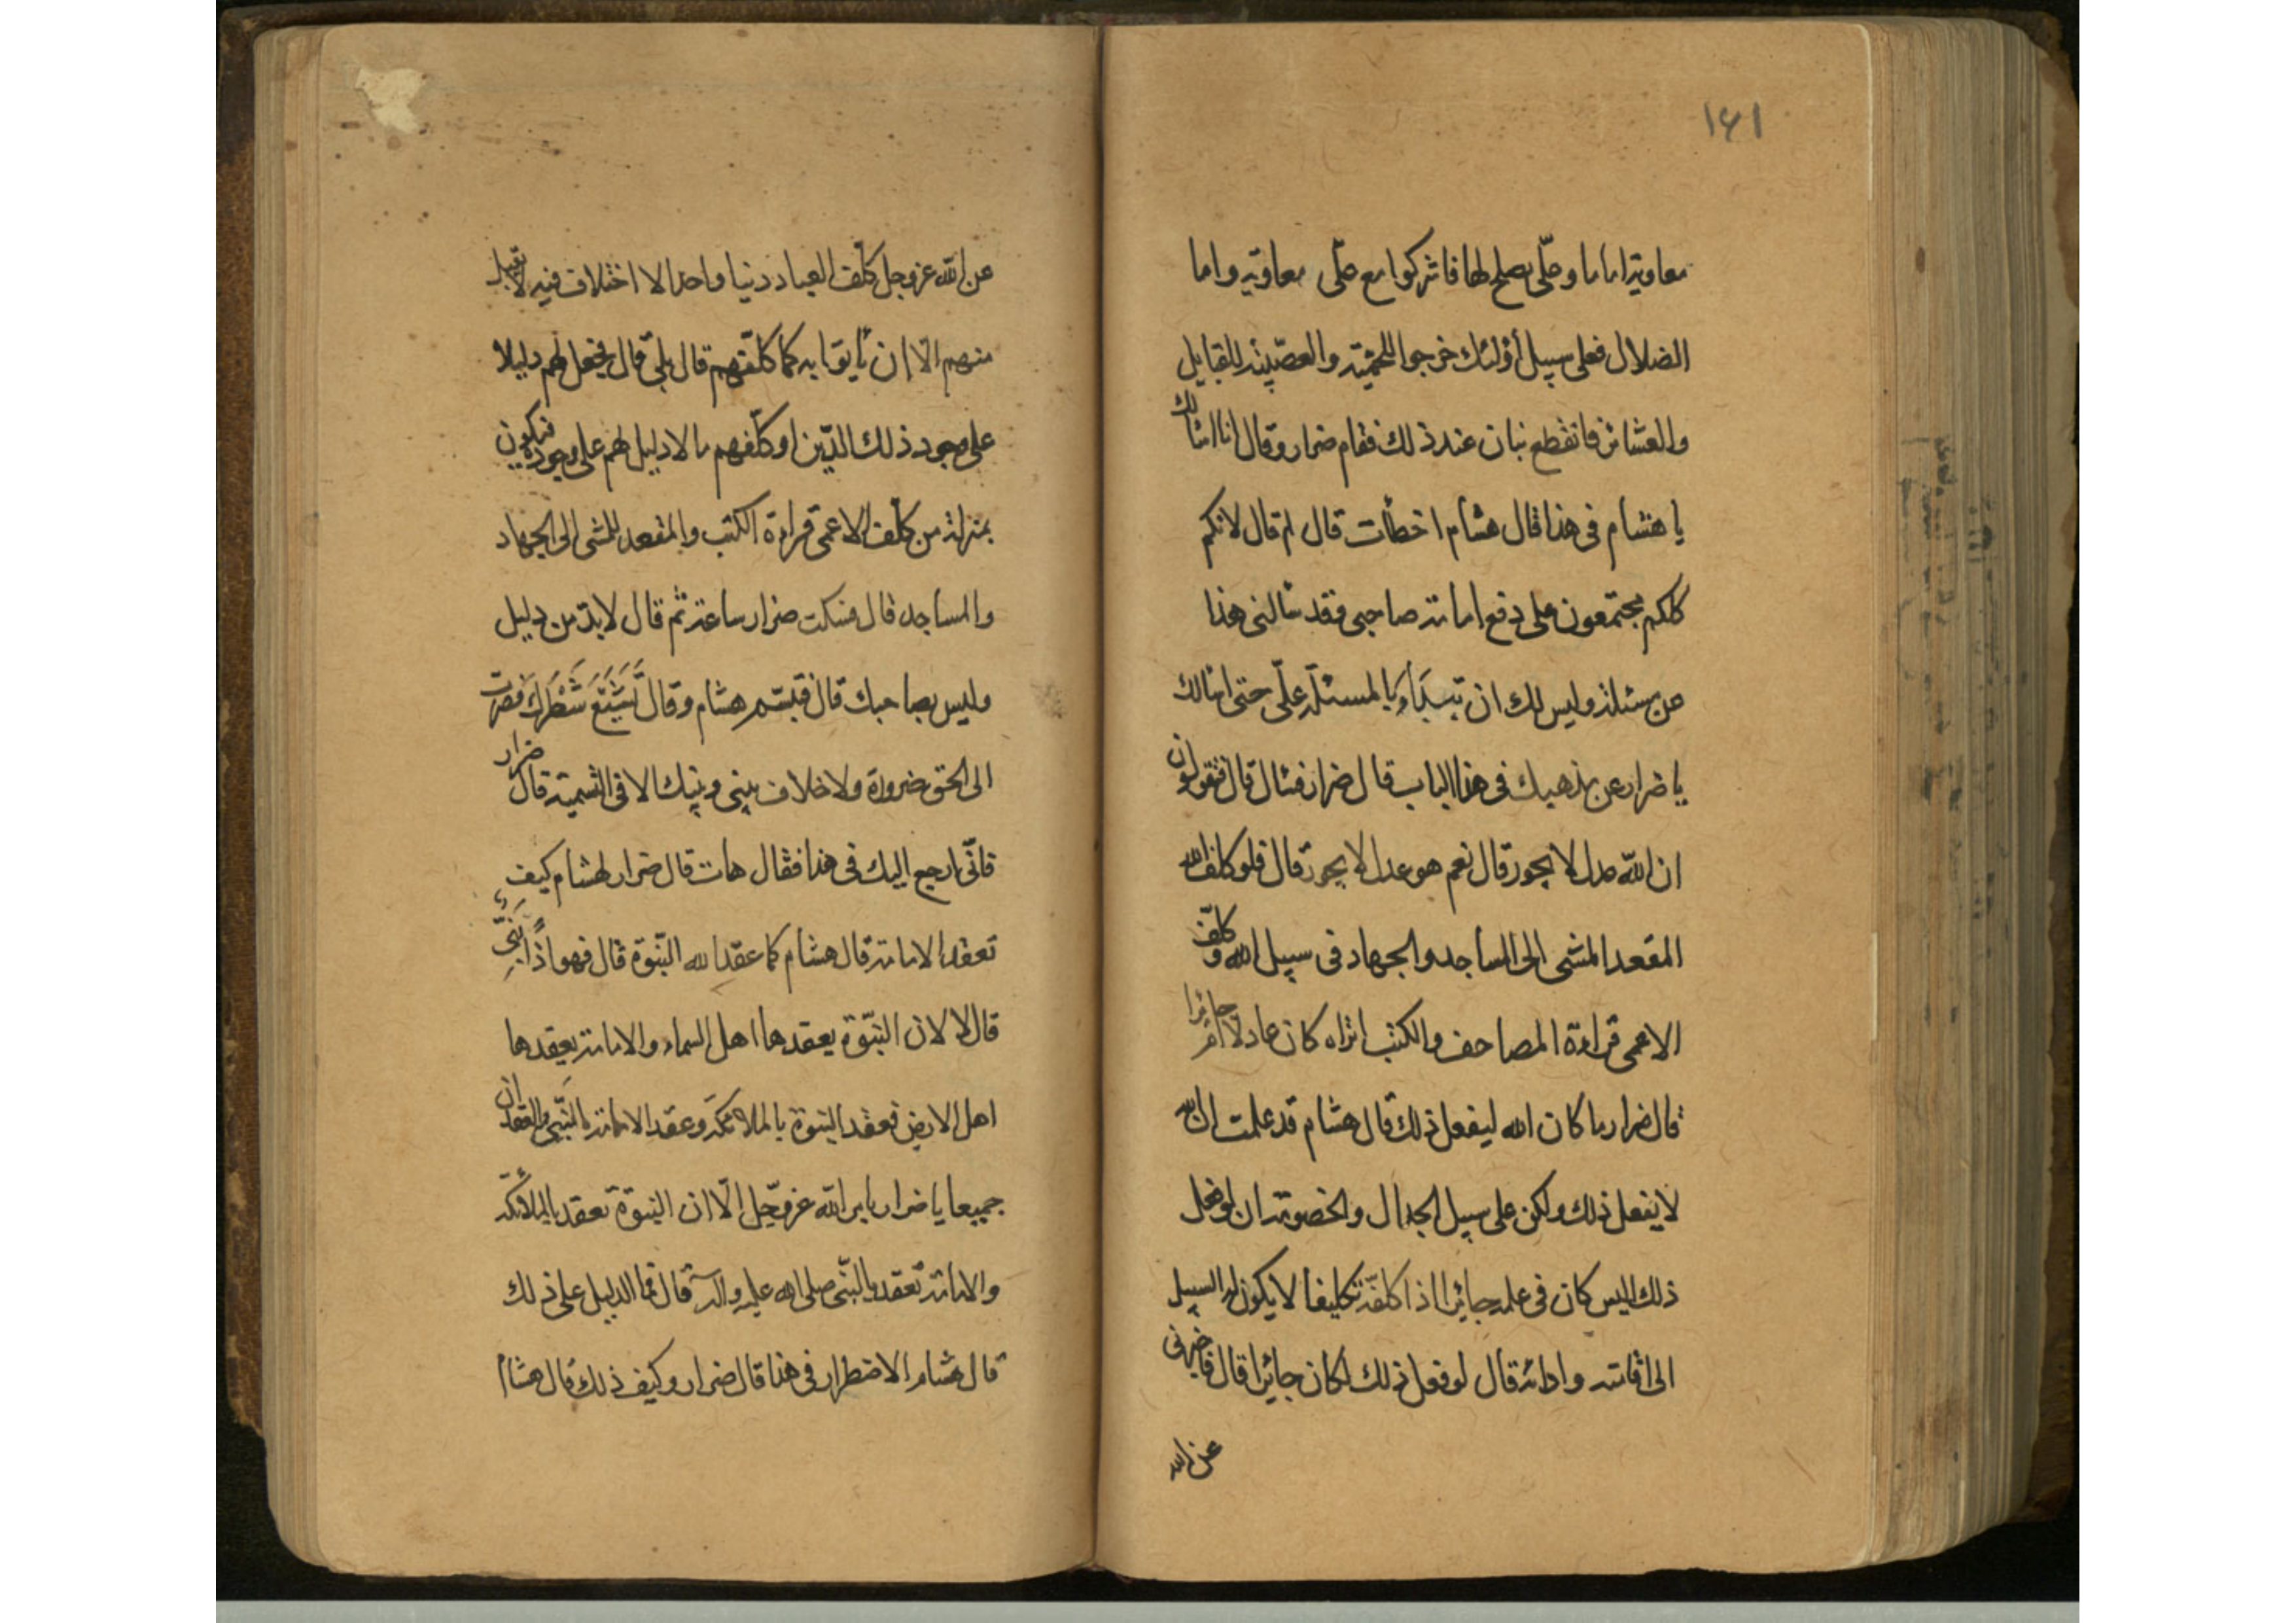 ١۶١
معاوية اماما وعلّى يصلح لها فاشركوا مع علّى معاوية واما
الضلال فعلى سبيل أولئك خرجوا للحمية والعصبية للقبايل
والعشائر فانقطع بنان عند ذلك فقام ضرار وقال انا اسالك
يا هشام فى هذا قال هشام اخطأت قال لم قال لانكم
كلكم مجتمعون على دفع امامة صاحبى فقد سالنى هذا
عن مسئلة وليس لك ان تبدأو بالمسئلة علّى حتى اسالك
يا ضرار عن مذهبك فى هذا الباب قال ضرار فسال قال فتقولون
ان الله عدل لا يجور قال نعم هو عدل لا يجور قال فلو كلف الله
المقعد المشى الى المساجد والجهاد فى سبيل الله وكلّف
الاعمى قراءة المصاحف والكتب اتراه كان عادلا ام جائرا
قال ضرار ما كان الله ليفعل ذلك قال هشام قد علمت ان الله
لا يفعل ذلك ولكن على سبيل الجدال والخصومة ان لو فعل
ذلك اليس كان فى علمه جائرا اذا كلفه تكليفا لا يكون له السبيل
الى اقامته وادائه قال لو فعل ذلك لكان جائرا قال فاخبرنى
عن الله
عن الله عز وجل كلّف العباد دينا واحدا لا اختلاف فيه لا يقبل
منهم الّا ان يأتوا به كما كلّفهم قال بلى قال فجعل لهم دليلا
على وجود ذلك الدّين او كلّفهم ما لا دليل لهم على وجوده فيكون
بمنزلة من كلّف الاعمى قراءة الكتب والمقعد المشى الى الجهاد
والمساجد قال فسكت ضرار ساعة ثم قال لا بدّ من دليل
وليس بصاحبك قال فتبسّم هشام وقال تَشَيَّعَ شَطْرُكَ فصرت
الى الحق ضرورة ولا خلاف بينى وبينك الا فى التسمية قال ضرار
فانّى ارجع اليك فى هذا فقال هات قال ضرار لهشام كيف
تعقد الامامة قال هشام كما عقد الله النّبوّة قال فهو اذاً نبىّ
قال لا لان النبّوة يعقدها اهل السماء والامامة يعقدها
اهل الارض فعقد النبوة بالملائكة وعقد الامامة بالنبّى والعقدان
جميعا يا ضرار بامر الله عز وجّل الّا ان النبوّة تعقد بالملائكة
والامامة تعقد بالنبّى صلى الله عليه وآله قال فما الدليل على ذلك
قال هشام الاضطرار فى هذا قال ضرار وكيف ذلك قال هشام